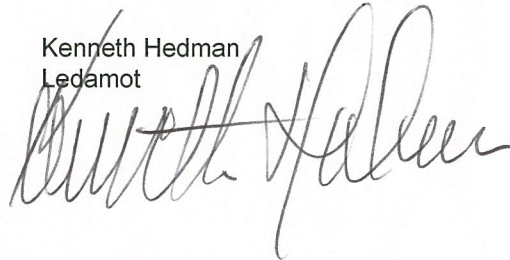 Kenneth Hedman
Ledamot
Kenneth Hedman